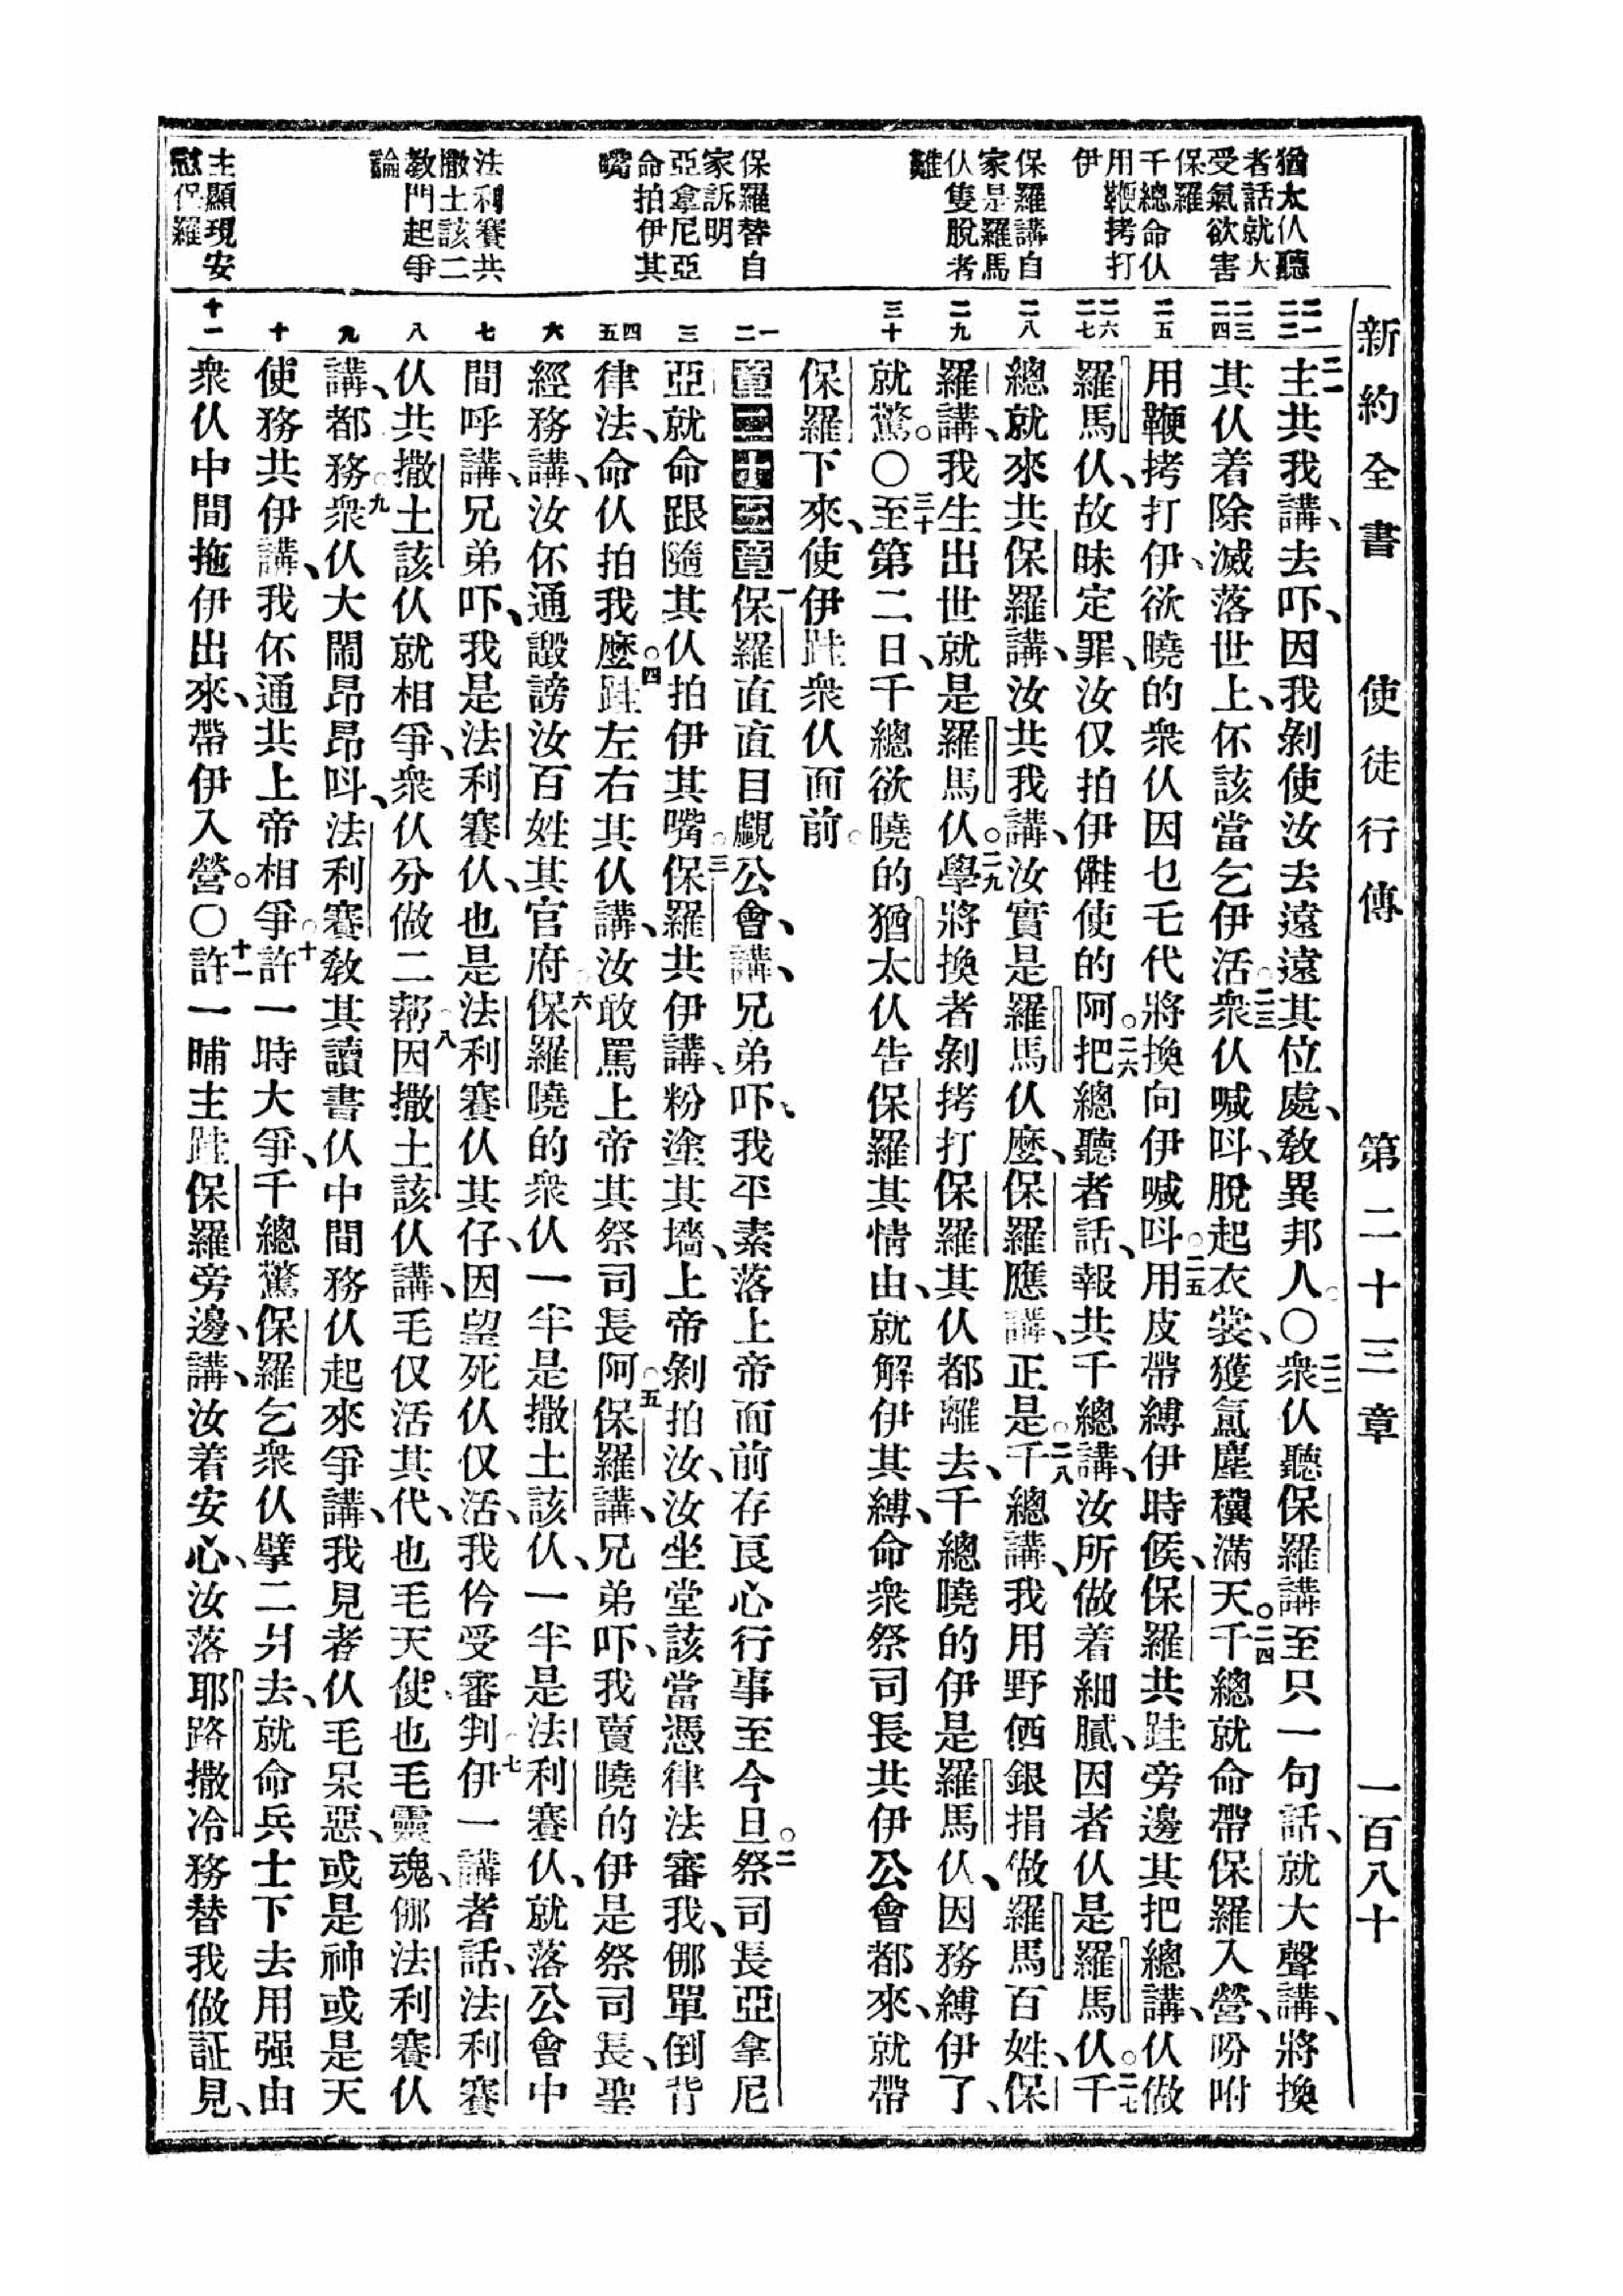 新約全書　使徒行傳　第二十三章　一百八十
猶太仈聽
者話就大
受氣欲害
保羅
千總命仈
用鞭拷打
伊
保羅講自
家是羅馬
仈隻脫者
難
保羅替自
家訴明
亞拿尼亞
命拍伊其
嘴
法利賽共
撒土該二
教門起爭
論
主顯現安
慰保羅
二一 二二
二三 二四
二五
二六 二七
二八
二九
三十
一 二
三
四 五
六
七
八
九
十
十一
二一主共我講、去吓、因我剝使汝去遠遠其位處、敎異邦人。〇二二衆仈聽保羅講至只一句話、就大聲講、將換
其仈着除滅落世上、伓該當乞伊活。二三衆仈喊呌、脫起衣裳、獲亙塵𥤛滿天。二四千總就命帶保羅入營、吩咐
用鞭拷打伊、欲曉的衆仈因乜乇代將換向伊喊呌。二五用皮帶縛伊時候、保羅共跬旁邊其把總講、仈做
羅馬仈、故昧定罪、汝仅拍伊㒓使的阿。二六把總聽者話、報共千總講、汝所做着細膩、因者仈是羅馬仈。二七千
總就來共保羅講、汝共我講、汝實是羅馬仈麼、保羅應講、正是。二八千總講、我用野㑚銀捐做羅馬百姓、保
羅講、我生出世就是羅馬仈。二九學將換者剝拷打保羅其仈都離去、千總曉的伊是羅馬仈、因務縛伊了、
就驚。〇三十至第二日、千總欲曉的猶太仈告保羅其情由、就解伊其縛、命衆祭司長共伊公會都來、就帶
保羅下來、使伊跬衆仈面前。
第二十三章一保羅直直目覷公會、講、兄弟吓、我平素落上帝面前存良心行事至今旦。二祭司長亞拿尼
亞就命跟隨其仈拍伊其嘴。三保羅共伊講、粉塗其墻、上帝剝拍汝、汝坐堂該當憑律法審我、㑚單倒背
律法、命仈拍我麼。四跬左右其仈講、汝敢罵上帝其祭司長阿。五保羅講、兄弟吓、我賣曉的伊是祭司長、聖
經務講、汝伓通譭謗汝百姓其官府。六保羅曉的衆仈一半是撒土該仈、一半是法利賽仈、就落公會中
間呼講、兄弟吓、我是法利賽仈、也是法利賽仈其仔、因望死仈仅活、我仱受審判。七伊一講者話、法利賽
仈共撒土該仈就相爭、衆仈分做二帮。八因撒土該仈講、毛仅活其代、也毛天使、也毛靈魂、㑚法利賽仈
講、都務。九衆仈大鬧昂昂呌、法利賽敎其讀書仈中間務仈起來爭講、我見者仈毛呆惡、或是神或是天
使務共伊講、我伓通共上帝相爭。十許一時大爭、千總驚保羅乞衆仈擘二爿去、就命兵士下去用强由
衆仈中間拖伊出來、帶伊入營。〇十一許一晡主跬保羅旁邊、講、汝着安心、汝落耶路撒冷務替我做証見、